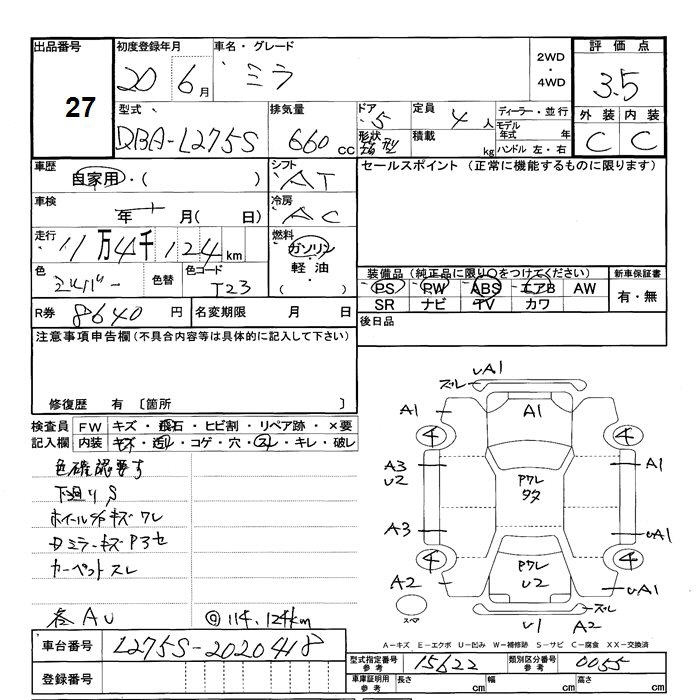 出品番号 初度登録年月 車名・グレード 2WD ・ 4WD 評価点
27 20 6月 ミラ 3.5
型式 排気量 ドア 定員 ディーラー・並行 外装 内装
DBA-L275S 660 cc 5 4人 モデル年式 年 C C
形状 箱型 積載 kg ハンドル 左・右
車歴 自家用・( ) シフト AT セールスポイント (正常に機能するものに限ります)
車検 年 月( 日) 冷房 AC
走行 11万4千124km 燃料 ガソリン・軽油・( )
色 シルバー 色替 色コード T23
装備品 (純正品に限り○をつけてください) 新車保証書
PS PW ABS エアB AW 有・無
SR ナビ TV カワ
R券 8640円 名変期限 月 日 後日品
注意事項申告欄(不具合内容等は具体的に記入して下さい)
修復歴 有 [箇所 ]
検査員記入欄 FW キズ・飛石・ヒビ割・リペア跡・×要
内装 キズ・汚レ・コゲ・穴・スレ・キレ・破レ
色確認要す
下廻りS
ホイールC/Pキズ ワレ
カーペットスレ
各AU @114,124km
UA1
ズレ
A1 A1
4 4
A3 A1
U2 Pワレ
A3 UA1
4 4
Pワレ
A2 U2 UA1
スペア ズレ
U1 A2
A-キズ E-エクボ U-凹み W-補修跡 S-サビ C-腐食 XX-交換済
車台番号 L275S-2020418
型式指定番号 参考 15622 類別区分番号 参考 0055
登録番号
車庫証明用 参考 長さ cm 幅 cm 高さ cm